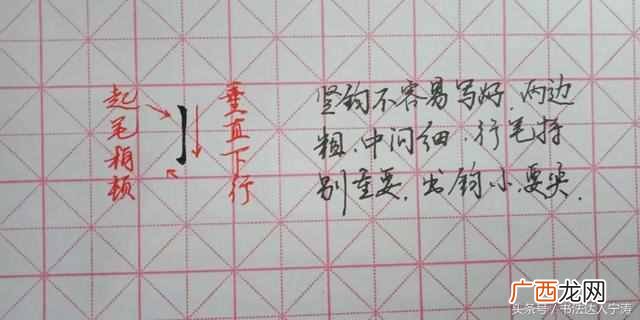 起笔稍顿
垂直下行
竖钩不容易写好,两边
粗,中间细,行笔特
别重要,出钩小,要尖.
广西龙网
头条号／书法达人宁涛